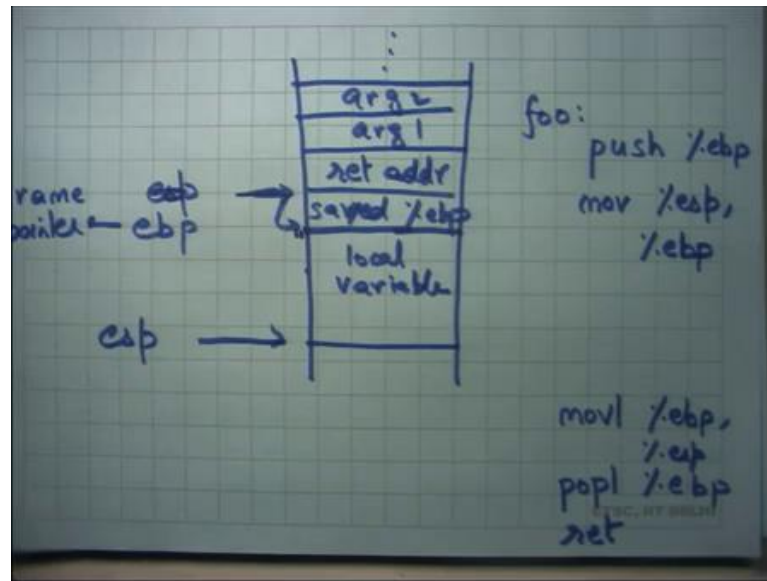 ⋮
arg 2
arg 1
ret addr
saved %ebp
local
variable
rame esp
pointer ebp
esp
foo:
push %ebp
mov %esp,
%ebp
movl %ebp,
%esp
popl %ebp
ret